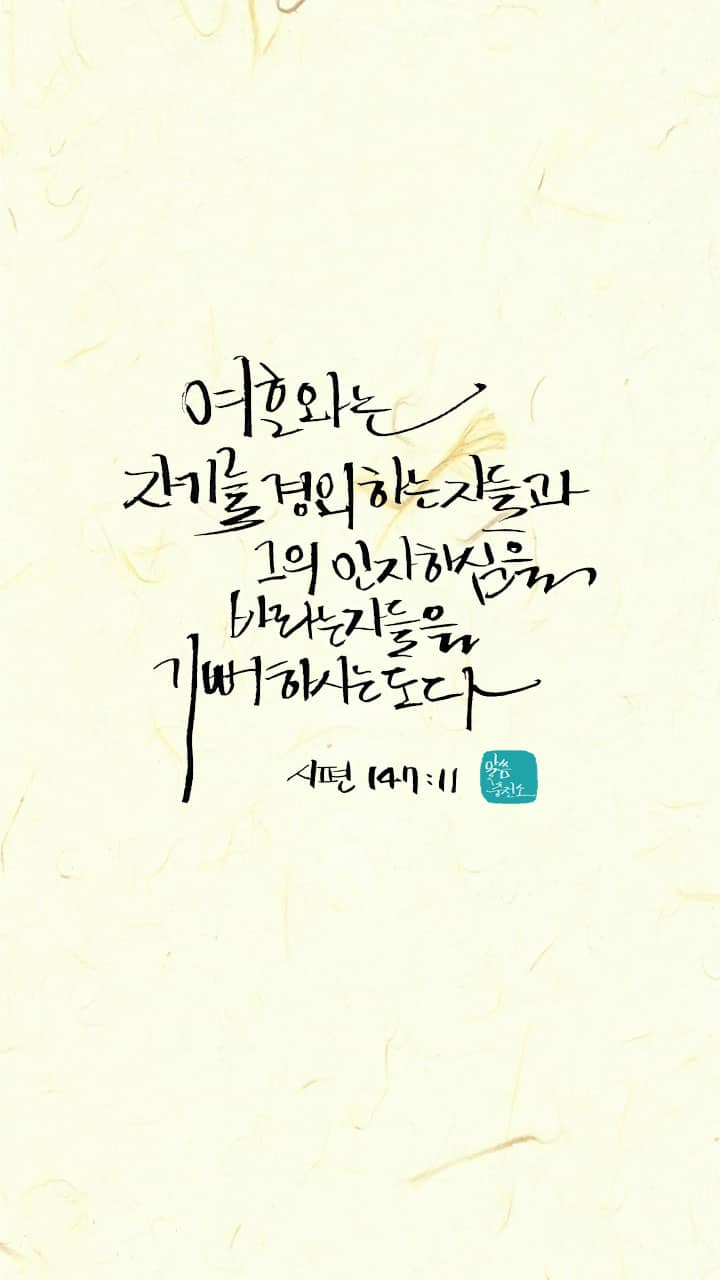 여호와는
자기를 경외하는자들과
그의 인자하심을
바라는자들을
기뻐하시는도다
시편 147:11
말씀
충전소